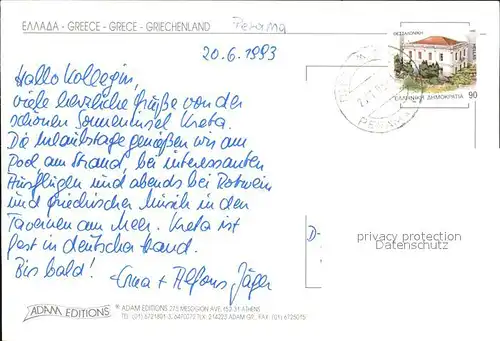 ΕΛΛΑΔΑ - GREECE - GRECE - GRIECHENLAND
Perama
20.6.1993
ΘΕΣΣΑΛΟΝΙΚΗ
ΕΛΛΗΝΙΚΗ ΔΗΜΟΚΡΑΤΙΑ 90
Hallo Kollegin,
viele herzliche Grüße von der
schönen Sonneninsel Kreta.
Die Urlaubstage genießen wir am
Pool am Strand, bei interessanten
Ausflügen und abends bei Rotwein
und griechischer Musik in den
Tavernen am Meer. Kreta ist
fest in deutscher Hand.
Bis bald! Erna + Alfons Jäger
D-
privacy protection
Datenschutz
ADAM EDITIONS
® ADAM EDITIONS 275 MESOGION AVE, 152 31 ATHENS
TEL. (01) 6721801-3, 6470072 TLX: 214223 ADAM GR., FAX. (01) 6725015